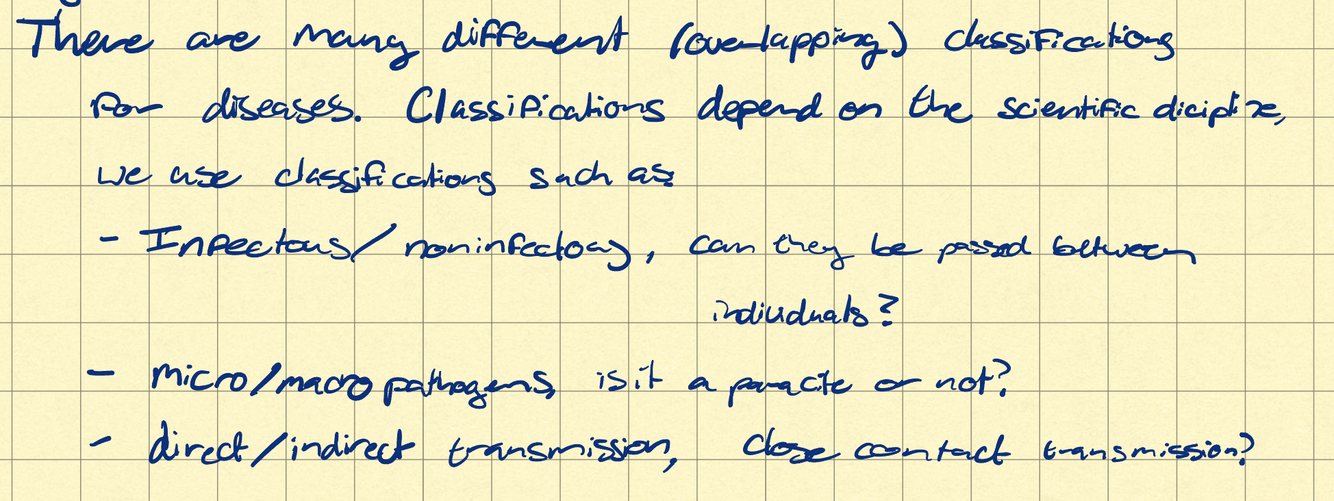 There are many different (overlapping) classifications
for diseases. Classifications depend on the scientific dicipline,
we use classifications such as:
- Infectous/noninfectous, can they be passed between
individuals?
- micro/macro pathogens, is it a paracite or not?
- direct/indirect transmission, close contact transmission?